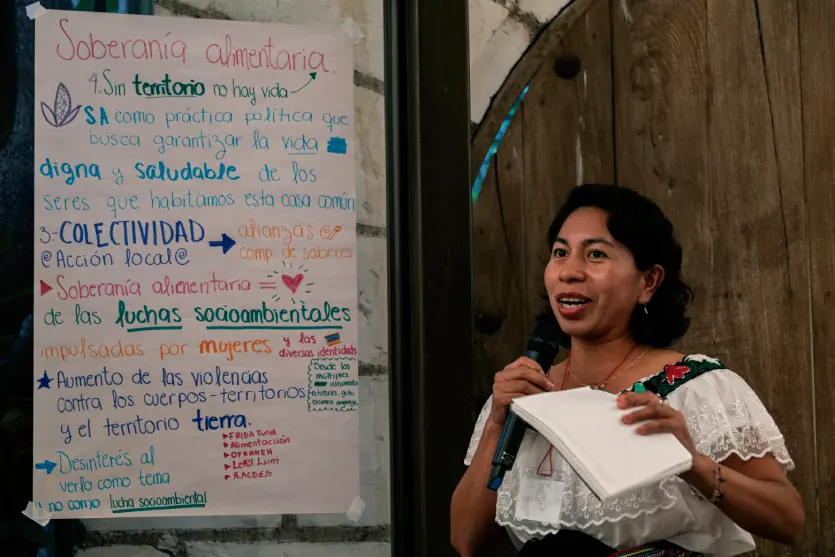 Soberanía alimentaria.
4. Sin territorio no hay vida
SA como práctica política que
busca garantizar la vida
digna y saludable de los
seres que habitamos esta casa común
3- COLECTIVIDAD → alianzas @
comp. de saberes
@ Acción local @
Soberanía alimentaria =
de las luchas socioambientales
impulsadas por mujeres y las
diversas identidades
Aumento de las violencias
contra los cuerpos-territorios
y el territorio tierra.
Desde las
múltiples
FRIDA Fund
Alimentacción
OFRANEH
Lekil Lum
RACDES
Desinterés al
verlo como tema
y no como lucha socioambiental